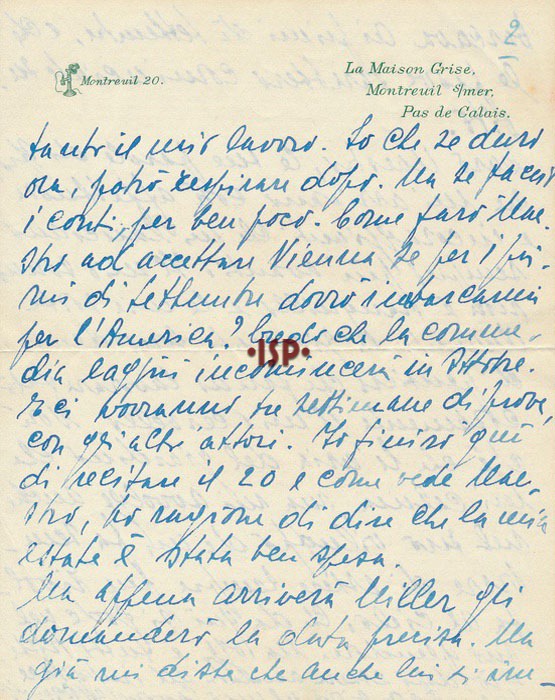 2
Montreuil 20.
La Maison Grise,
Montreuil s/mer,
Pas de Calais.
tanto il mio lavoro. So che se duro
ora, potrò respirare dopo. Ma se faccio
i conti, per ben poco. Come farò Mae-
stro ad accettare Vienna se per i pri-
mi di Settembre dovrò imbarcarmi
per l'America? Credo che la comme-
dia laggiù incomincerà in Ottobre.
E ci vorranno tre settimane di prove,
con gli altri attori. Io finirò qui
di recitare il 20 e come vede Mae-
stro, ho ragione di dire che la mia
estate è stata ben spesa.
Ma appena arriverà Miller gli
domanderò la data precisa. Ma
già mi disse che anche lui si im-
•ISP•